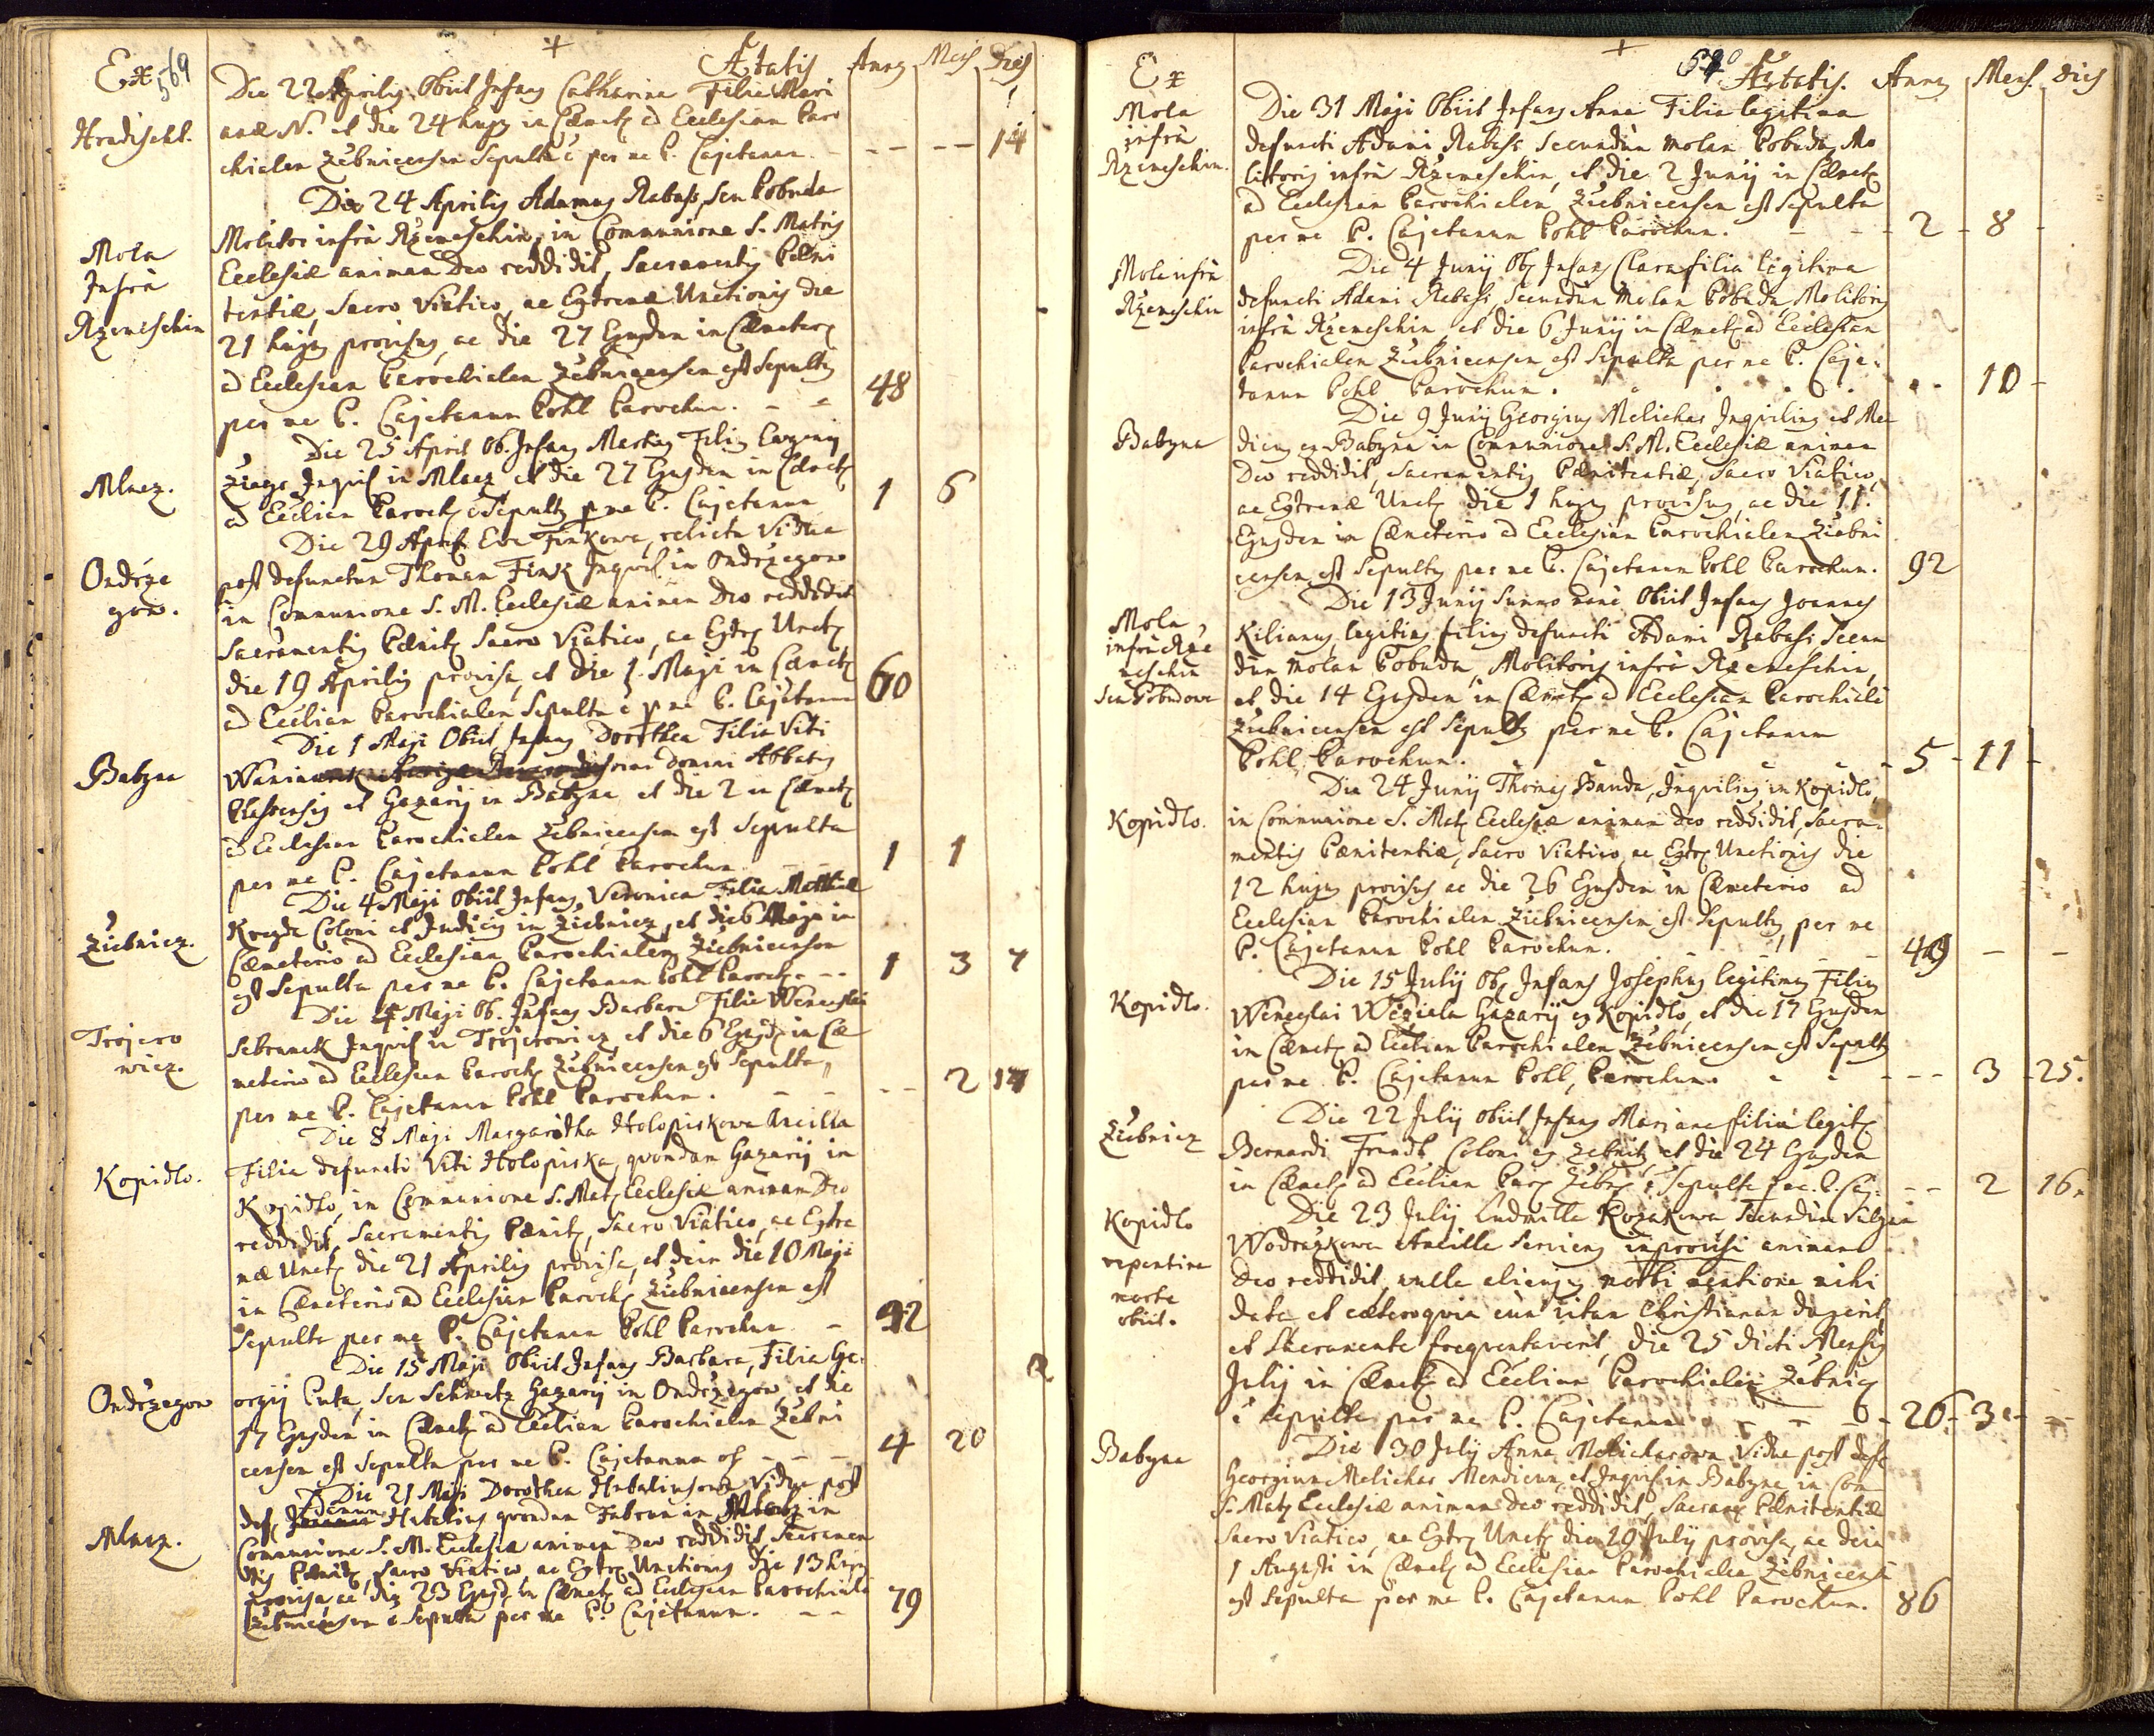 Ex 569 + Ætatis Anng Mens Dies
Die 22 Aprilis Obiit Infans Catharina Filia Mari
Hradischt.
anæ N. et die 24 hujg in Cæmet ad Ecclesiam Paro
chialem Zebnicensem Sepulta ē per me P. Cajetanum - - - - 14
Die 24 Aprilis Adamus Rabass, seu Pobuda
Mola
Infra
Rzemeschin
Molitor infra Rzemeschin, in Communione S. Matris
Ecclesiæ animam Deo reddidit, Sacramentis Pœni
tentiæ, Sacro Viatico, ac Extremæ Unctionis die
21 hujus provisus, ac die 27 Ejusdem in Cæmeter
ad Ecclesiam Parochialem Zebnicensem est Sepultus
per me P. Cajetanum Pohl Parochum. - - 48
Die 25 April Ob. Infans Filius
Mlacz.
Inquil in Mlacz et die 27 Ejusdem in Cæmet
ad Eccliam Paroch ē Sepultus p me P. Cajetanum 1 6
Die 29 April Eva Finkowa, relicta Vidua
Ondrze
gow.
post defunctum Thomam Fink Inquil in Ondrzegow
in Communione S. M. Ecclesiæ animam Deo reddidit
Sacramentis Pœnit Sacro Viatico, ac Extr Unct
die 19 Aprilis provisa, et die 1 Maji in Cæmet
ad Eccliam Parochialem Sepulta ē p me P. Cajetanum 60
Die 1 Maji Obiit Infans Dorothea Filia Viti
Babyna
Domini Abbatis
Plassensis et Gazarij in Babyna, et die 2 in Cæmet
ad Ecclesiam Parochialem Zebnicensem est Sepulta
per me P. Cajetanum Pohl Parochum - - 1 1
Die 4 Maji Obiit Infans Veronica Filia Matthiæ
Ziebnicz.
Coloni et Judicis in Ziebnicz, et die 6 Maji in
Cæmeterio ad Ecclesiam Parochialem Ziebnicensem
est Sepulta per me P. Cajetanum Pohl Paroch. - - 1 3 7
Die 4 Maji Ob. Infans Barbara Filia Wenceslai
Trojero
wicz.
Sebranek Inquil in Trojerowicz, et die 6 Ejusd in Cæ
meterio ad Ecclesiam Paroch Zebnicensem est Sepulta
per me P. Cajetanum Pohl Parochum. - - - - 2 14
Die 8 Maji Margaritha Holopirkowa Ancilla
Kopidlo.
Filia defuncti Viti Holopirka, quondam Gazarij in
Kopidlo, in Communione S. Mat Ecclesiæ animam Deo
reddidit, Sacramentis Pœnit, Sacro Viatico, ac Extre
mæ Unct die 21 Aprilis provisa, et dein die 10 Maji
in Cæmeterio ad Ecclesiam Paroch Ziebnicensem est
Sepulta per me P. Cajetanum Pohl Parochum - 32
Die 15 Maji Obiit Infans Barbara, Filia Ge
Ondrzegow
orgij Puta, seu Schwetz Gazarij in Ondrzegow, et die
17 Ejusdem in Cæmet ad Eccliam Parochialem Zebni
censem est Sepulta per me P. Cajetanum - - - 4 20
Die 21 Maji Dorothea Hubalinsowa Vidua post
Mlacz.
def Adamum quondam Fabrum in Mlacz in
Communione S. M. Ecclesiæ animam Deo reddidit, Sacramen
tis Pœnit, Sacro Viatico, ac Extr Unctionis die 13 hujus
provisa, ac die 23 Ejusd in Cæmet ad Ecclesiam Parochiale
Zebnicensem ē Sepulta per me P. Cajetanum. - - 79
Ex + 570 Ætatis. Anng Mens. Dies
Mola
infra
Rzemeschin.
Die 31 Maji Obiit Infans Anna Filia legitima
defuncti Adami Rabass secundum molam Pobuda, Mo
litoris infra Rzemeschin, et die 2 Junij in Cæmet
ad Ecclesiam Parochialem Ziebnicensem est Sepulta
per me P. Cajetanum Pohl Parochum. - - - 2 - 8 -
Mola infra
Rzemeschin
Die 4 Junij Ob Infans Clara filia legitima
defuncti Adami Rabass, secundum molam Pobuda, Molitoris
infra Rzemeschin, et die 6 Junij in Cæmet ad Ecclesiam
Parochialem Ziebnicensem est Sepulta per me P. Caje-
tanum Pohl Parochum. - - 10 -
Babyna
Die 9 Junij Georgius Melichar Inquilinus et Men
dicus ex Babyna in Communione S. M. Ecclesiæ animam
Deo reddidit, Sacramentis Pœnitentiæ, Sacro Viatico,
ac Extremæ Unct die 1 hujus provisus, ac die 11.
Ejusdem in Cæmeterio ad Ecclesiam Parochialem Ziebni
censem est Sepultus per me P. Cajetanum Pohl Parochum. 92
Mola
infra Rze
meschin
seu Pobudowa
Die 13 Junij summo mane Obiit Infans Joannes
Kilianus, legitimus filius defuncti Adami Rabass, secun
dum molam Pobuda, Molitoris infra Rzemeschin,
et die 14 Ejusdem in Cæmet ad Ecclesiam Parochiale
Ziebnicensem est Sepultus per me P. Cajetanum
Pohl, Parochum. - - - 5 - 11 -
Die 24 Junij Thomas Bauda, Inquilinus in Kopidlo,
Kopidlo.
in Communione S. Mat Ecclesiæ animam Deo reddidit, Sacra-
mentis Pœnitentiæ, Sacro Viatico, ac Extr Unctionis die
12 hujus provisus ac die 26 Ejusdem in Cæmeterio ad
Ecclesiam Parochialem Ziebnicensem est Sepultus, per me
P. Cajetanum Pohl Parochum. - - - 49 - -
Die 15 Julij Ob Infans Josephus legitimus Filius
Kopidlo.
Wenceslai Gazarij ex Kopidlo, et die 17 Ejusdem
in Cæmet ad Eccliam Parochialem Zebnicensem est Sepultus
per me P. Cajetanum Pohl, Parochum. - - - - 3 - 25.
Die 22 Julij obiit Infans Mariana filia legit
Ziebnicz
Bernardi Coloni ex Zebnitz, et die 24 Ejusdem
in Cæmet ad Eccliam Par Zebn ē Sepulta p me P. Caj. - - 2 16.
Die 23 Julij Ludmilla Kozakowa secundum
Kopidlo
repentina
morte
obiit.
Ancilla serviens improvisè animam
Deo reddidit, nulla alicujus morbi mentione mihi
data et cæteroquin cum vitam Christianam duxerit,
et Sacramenta frequentaverit, die 25 dicti Mensis
Julij in Cæmet ad Eccliam Parochialem Zebnic
ē sepulta per me P. Cajetanum - - - 26 - 3 - -
Babyna
Die 30 Julij Anna Melicharowa Vidua post def
Georgium Melichar Mendicum, et Inquil in Babyna, in Com
S. Mat Ecclesiæ animam Deo reddidit, Sacram Pœnitentiæ
Sacro Viatico, ac Extr Unct die 29 Julij provisa, ac dein
1 Augusti in Cæmet ad Ecclesiam Parochialem Zebnicens
est Sepulta per me P. Cajetanum Pohl Parochum. 86